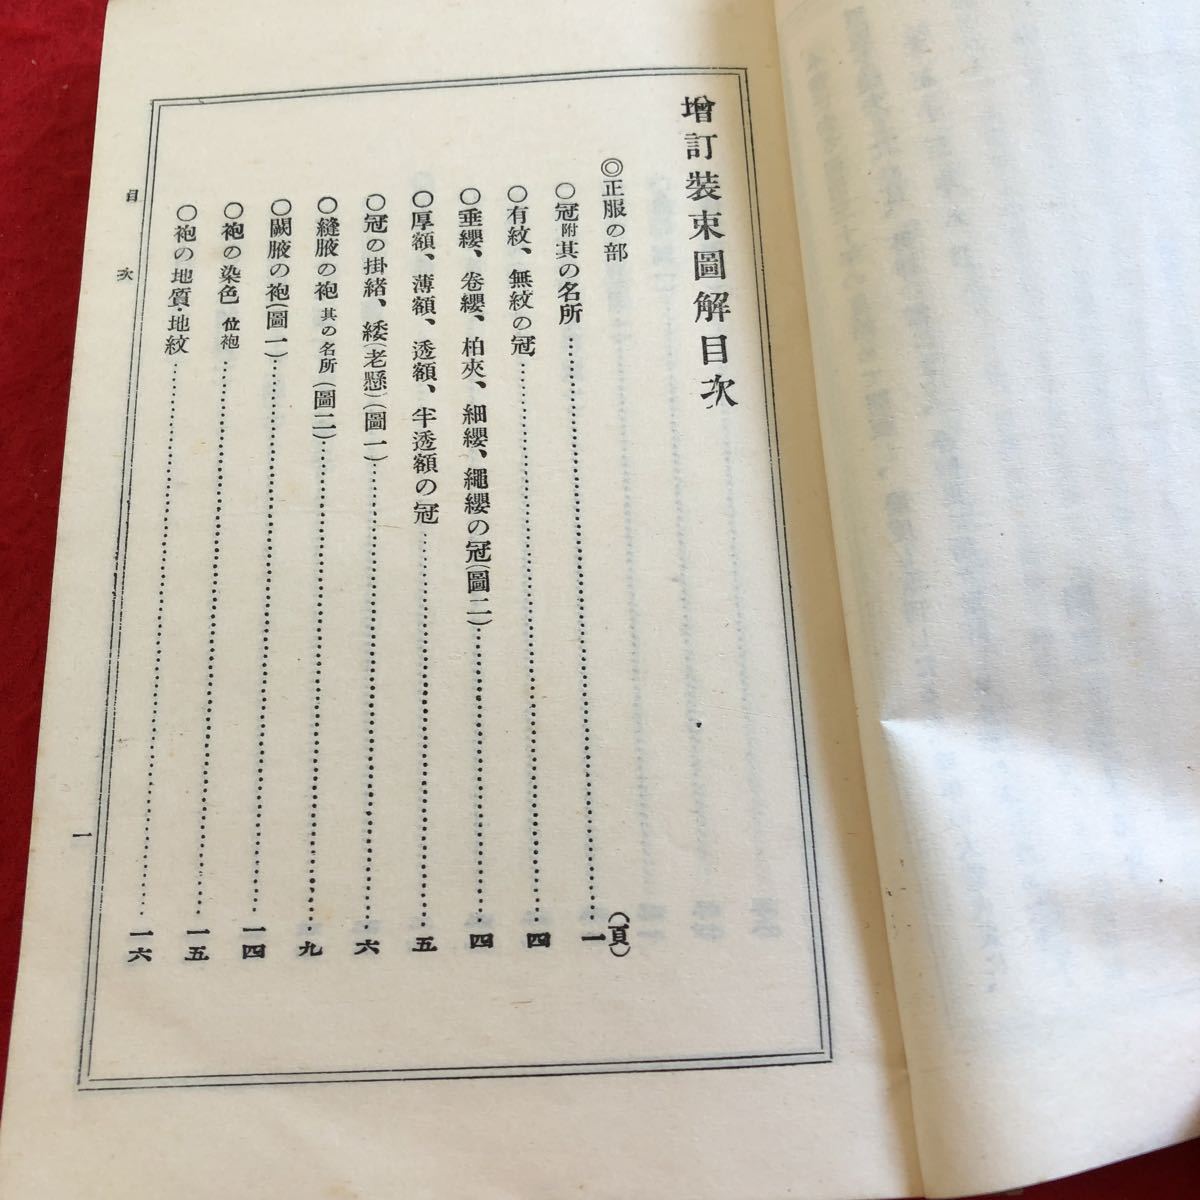 增訂裝束圖解目次
◎正服の部
(頁)
○冠附其の名所…………一
○有紋、無紋の冠…………四
○垂纓、卷纓、柏夾、細纓、繩纓の冠(圖二)…………四
○厚額、薄額、透額、半透額の冠…………五
○冠の掛緒、緌(老懸)(圖一)…………六
○縫腋の袍 其の名所(圖二)…………九
○闕腋の袍(圖一)…………一四
○袍の染色 位袍…………一五
○袍の地質・地紋…………一六
目次
一